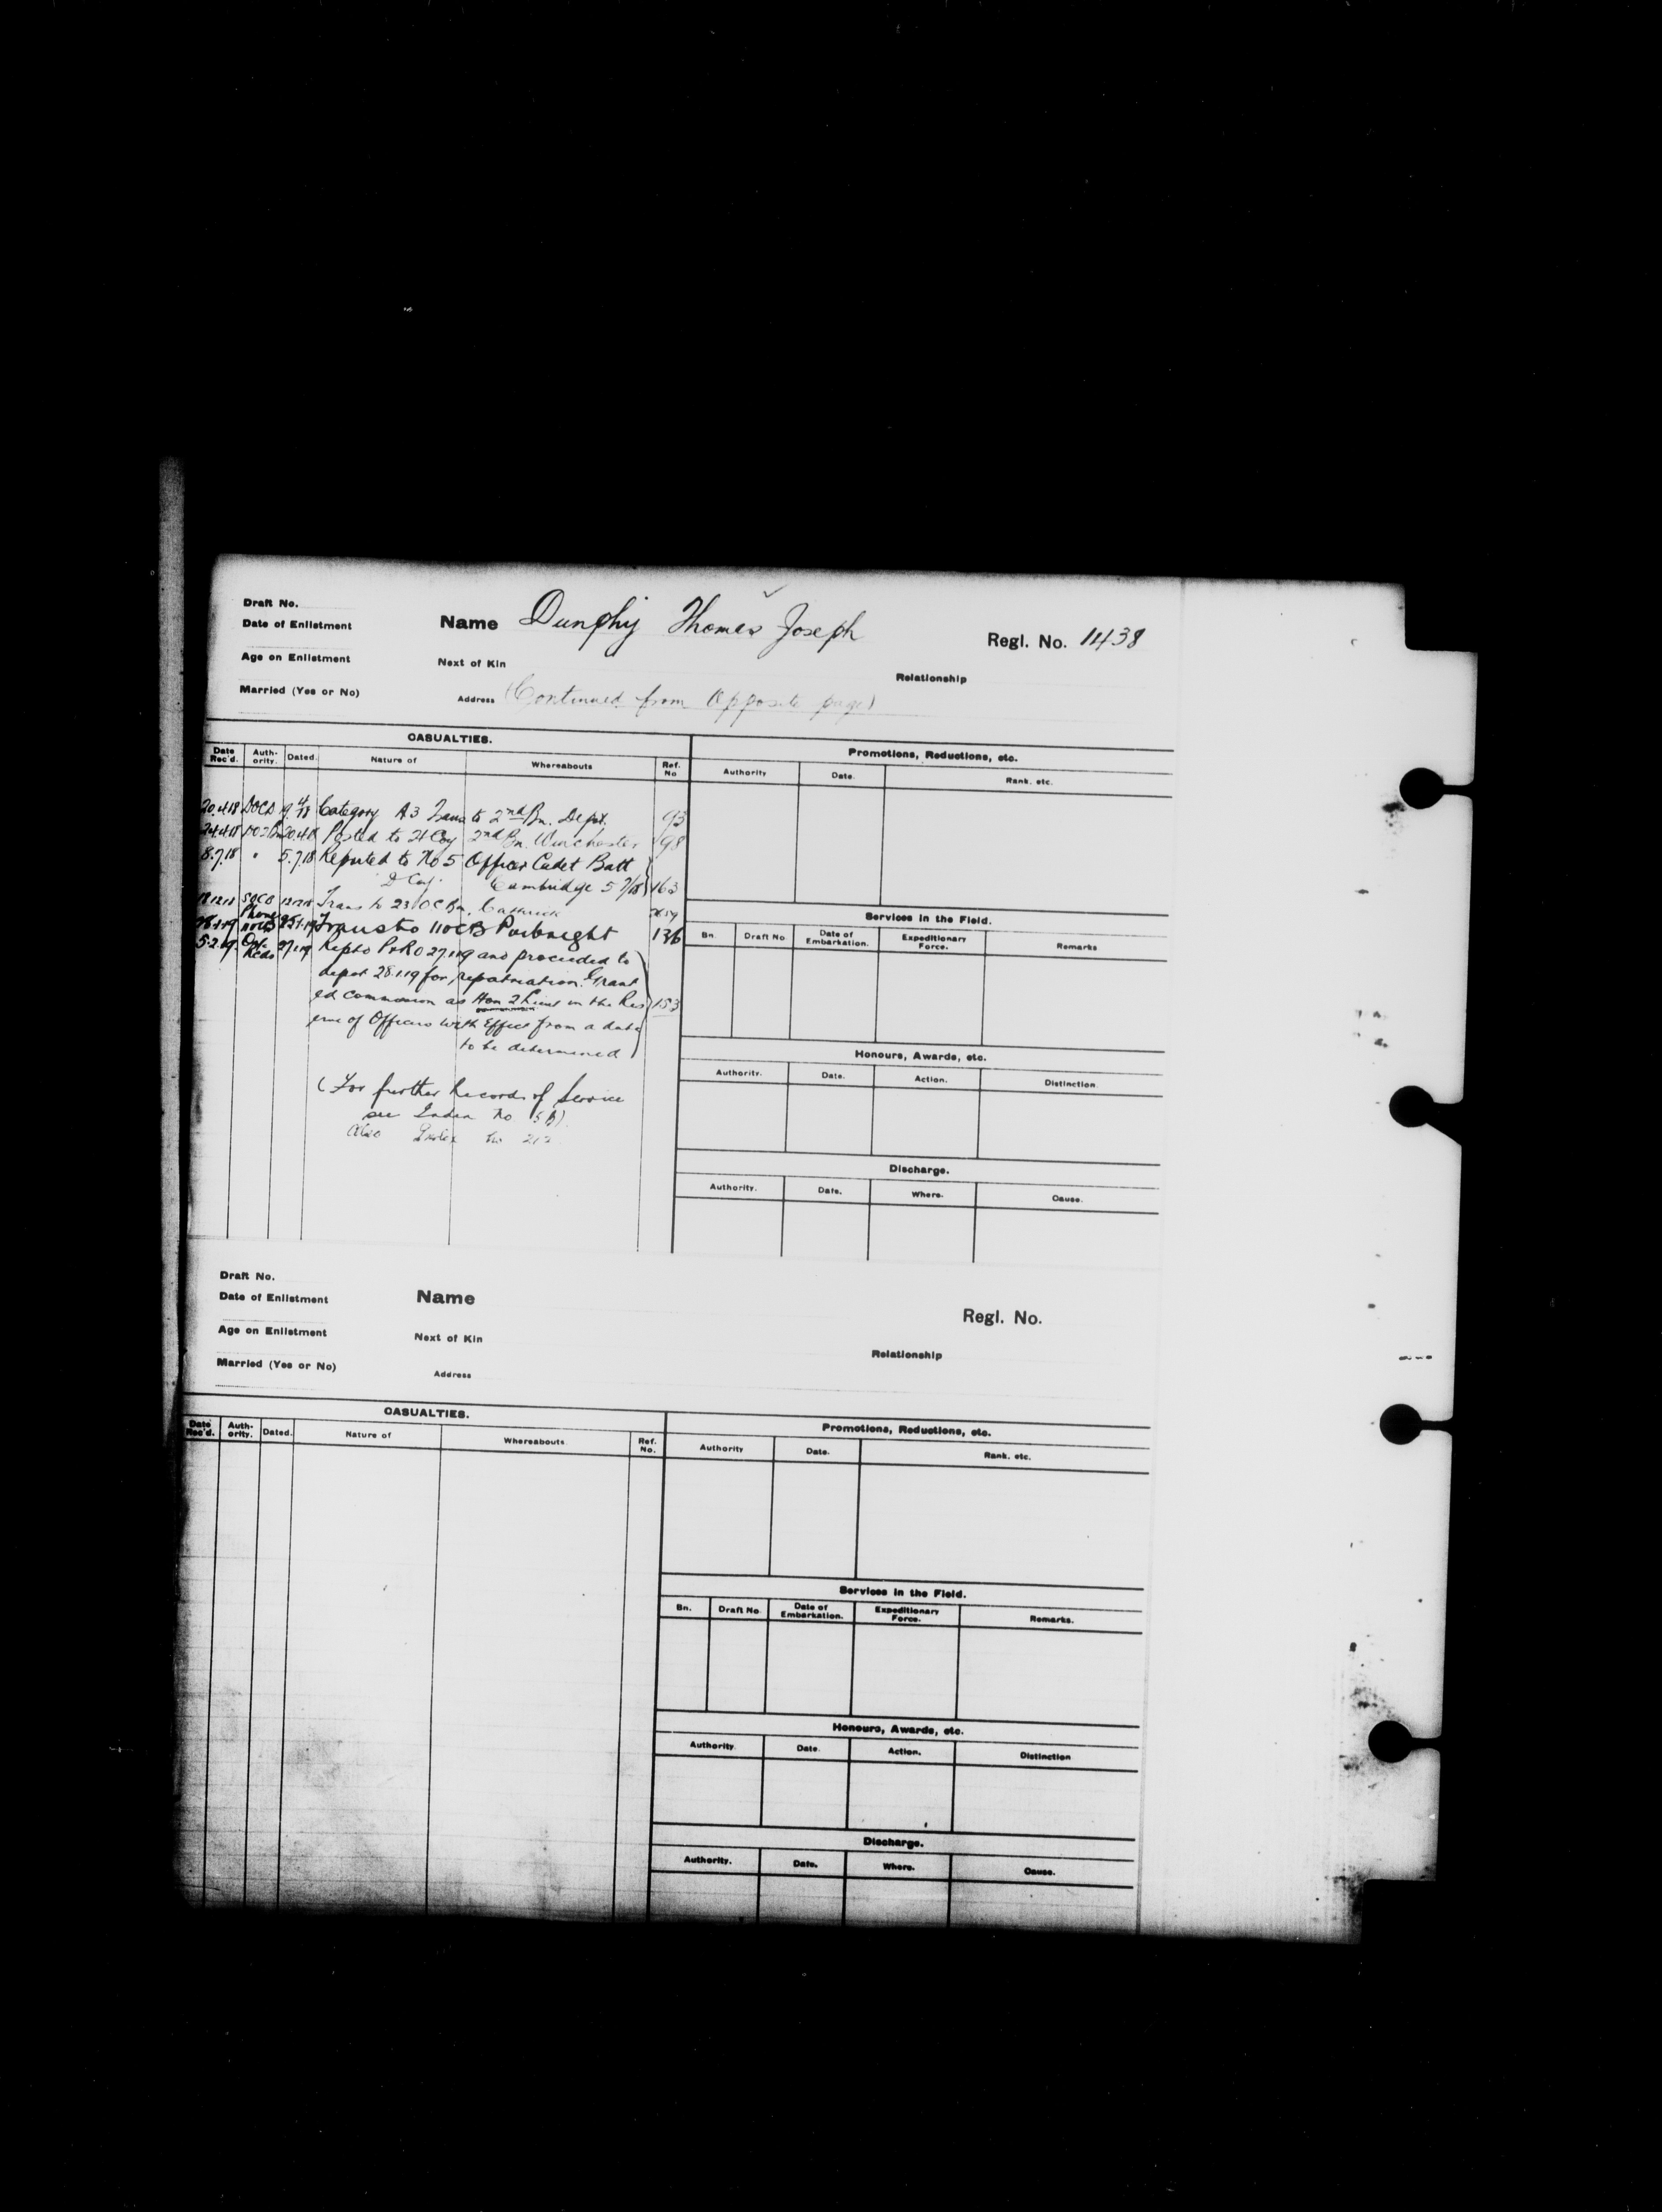 Draft No.
Date of Enlistment
Name Dunphy Thomas Joseph
Regl. No. 1438
Age on Enlistment
Next of Kin
Relationship
Married (Yes or No)
Address (Continued from Opposite page)
CASUALTIES.
Promotions, Reductions, etc.
Date Rec'd. Auth-ority. Dated. Nature of Whereabouts Ref. No
Authority Date. Rank. etc.
20.4.18 DOCD 19 4/18 Category A3 Trans to 2nd Bn. Depot. 93
24.4.18 20.4.18 Posted to H Coy 2nd Bn. Winchester 98
8.7.18 " 5.7.18 Reported to No 5 Officer Cadet Batt
D Coy. Cambridge 5 7/18 163
Trans to 23 OC Bn. Catterick
28.1.19 Phone 25.1.19 Trans to 11 OCB Pirbright 136
5.2.19 27.1.19 Repto P&RO 27.1.19 and proceeded to
depot 28.1.19 for repatriation. Grant
ed commission as Hon 2 Lieut in the Res 153
erve of Officers with Effect from a date
to be determined
(For further Records of Service
see Index No (5B)
Also Index No 212
Services in the Field.
Bn. Draft No Date of Embarkation. Expeditionary Force. Remarks
Honours, Awards, etc.
Authority. Date. Action. Distinction.
Discharge.
Authority. Date. Where. Cause.
Draft No.
Date of Enlistment
Name
Regl. No.
Age on Enlistment
Next of Kin
Relationship
Married (Yes or No)
Address
CASUALTIES.
Promotions, Reductions, etc.
Date Rec'd. Auth-ority. Dated. Nature of Whereabouts. Ref. No.
Authority Date. Rank. etc.
Services in the Field.
Bn. Draft No Date of Embarkation. Expeditionary Force. Remarks.
Honours, Awards, etc.
Authority. Date. Action. Distinction
Discharge.
Authority. Date. Where. Cause.